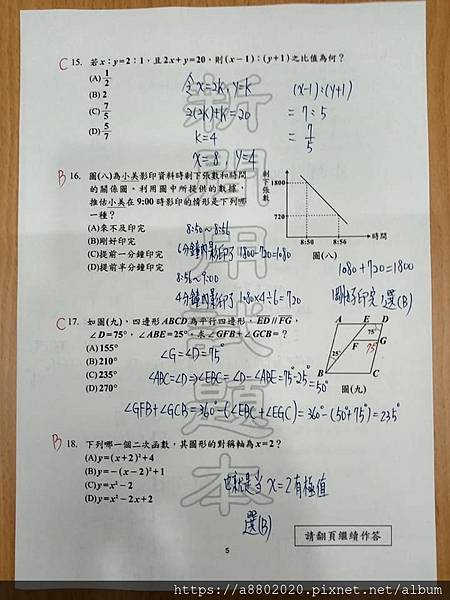 C 15. 若x:y=2:1,且2x+y=20,則(x-1):(y+1)之比值為何?
(A) 1/2
(B) 2
(C) 7/5
(D) 5/7
令x=2k, y=k
2(2k)+k=20
k=4
x=8, y=4
(x-1):(y+1)
=7:5
=7/5
B 16. 圖(八)為小美影印資料時剩下張數和時間
的關係圖。利用圖中所提供的數據,
推估小美在9:00時影印的情形是下列哪
一種?
(A)來不及印完
(B)剛好印完
(C)提前一分鐘印完
(D)提前半分鐘印完
8:50~8:56
6分鐘內影印了 1800-720=1080
8:56~9:00
4分鐘影印了 1080x4÷6=720
剩下張數
1800
720
8:50
8:56
時間
圖(八)
1080+720=1800
剛好印完 選(B)
C 17. 如圖(九),四邊形ABCD為平行四邊形,ED//FG,
∠D=75°,∠ABE=25°,求∠GFB+∠GCB=?
(A) 155°
(B) 210°
(C) 235°
(D) 270°
∠G=∠D=75°
∠ABC=∠D⇒∠EBC=∠D-∠ABE=75°-25°=50°
∠GFB+∠GCB=360°-(∠EBC+∠EGC)=360°-(50°+75°)=235°
A
E
D
75°
F
75
G
25°
B
C
圖(九)
B 18. 下列哪一個二次函數,其圖形的對稱軸為x=2?
(A) y=(x+2)²+4
(B) y=-(x-2)²+1
(C) y=x²-2
(D) y=x²-2x+2
也就是當 x=2有極值
選(B)
請翻頁繼續作答
5
新開組試題本
https://a8802020.pixnet.net/album